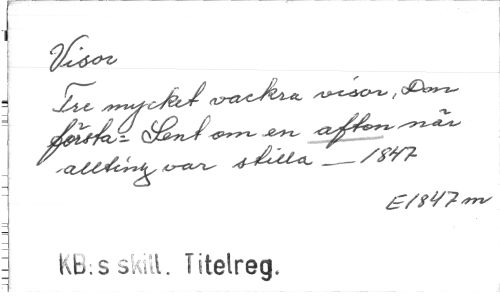 Visor
Tre mycket vackra visor, Den
första = Sent om en afton när
allting var stilla — 1847
E1847m
KB:s skill. Titelreg.